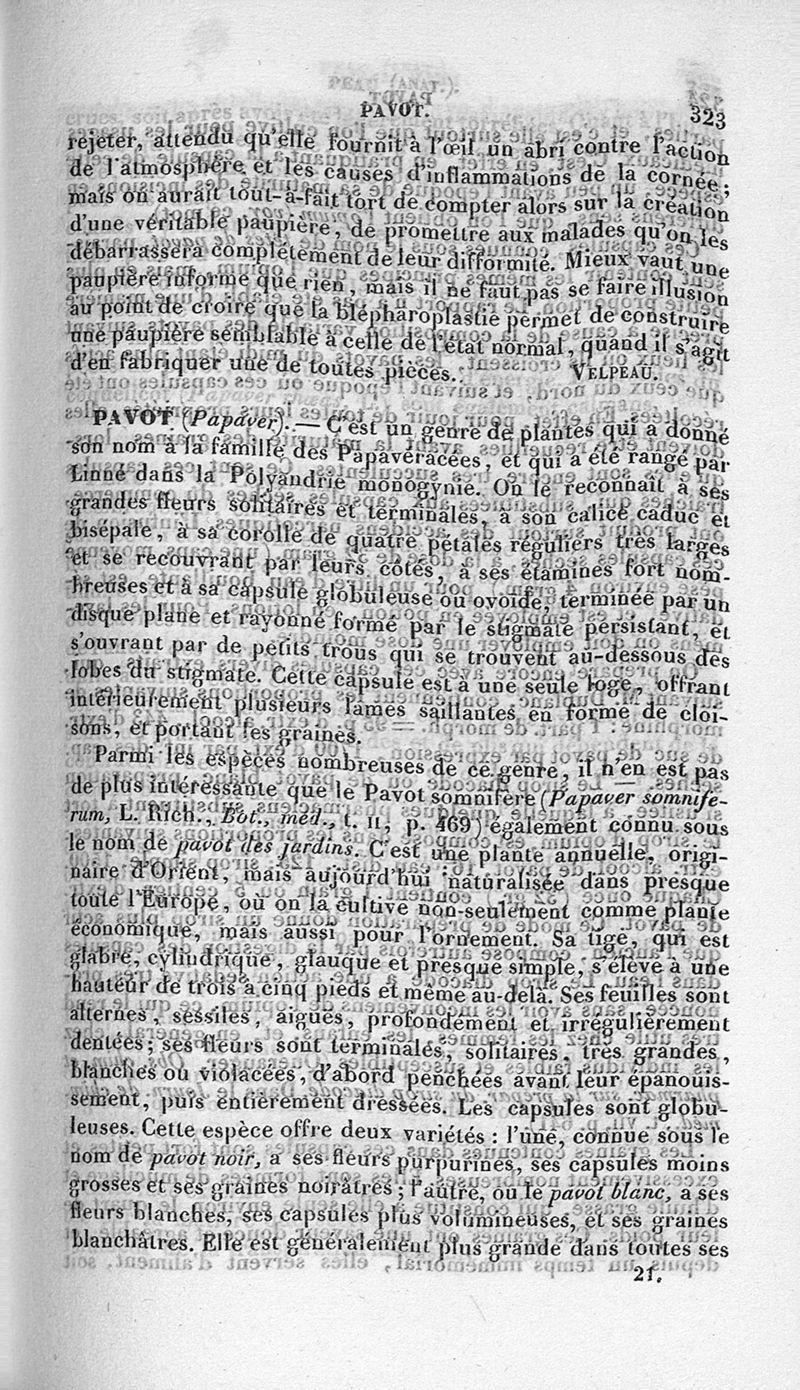 PAVOT. 323
rejeter, attendu qu'elle fournit à l'œil un abri contre l'action
de l'atmosphère et les causes d'inflammations de la cornée;
mais on aurait tout-à-fait tort de compter alors sur la création
d'une véritable paupière, de promettre aux malades qu'on les
débarrassera complétement de leur difformité. Mieux vaut une
paupière informe que rien, mais il ne faut pas se faire illusion
au point de croire que la blépharoplastie permet de construire
une paupière semblable à celle de l'état normal, quand il s'agit
d'en fabriquer une de toutes pièces. VELPEAU.
PAVOT (Papaver). — C'est un genre de plantes qui a donné
son nom à la famille des Papavéracées, et qui a été rangé par
Linné dans la Polyandrie monogynie. On le reconnaît à ses
grandes fleurs solitaires et terminales, à son calice caduc et
bisépale, à sa corolle de quatre pétales réguliers très larges
et se recouvrant par leurs côtés, à ses étamines fort nom-
breuses et à sa capsule globuleuse ou ovoïde, terminée par un
disque plane et rayonné formé par le stigmate persistant, et
s'ouvrant par de petits trous qui se trouvent au-dessous des
lobes du stigmate. Cette capsule est à une seule loge, offrant
intérieurement plusieurs lames saillantes en forme de cloi-
sons, et portant les graines.
Parmi les espèces nombreuses de ce genre, il n'en est pas
de plus intéressante que le Pavot somnifère (Papaver somnife-
rum, L. Rich., Bot. méd., t. II, p. 469) également connu sous
le nom de pavot des jardins. C'est une plante annuelle, origi-
naire d'Orient, mais aujourd'hui naturalisée dans presque
toute l'Europe, où on la cultive non-seulement comme plante
économique, mais aussi pour l'ornement. Sa tige, qui est
glabre, cylindrique, glauque et presque simple, s'élève à une
hauteur de trois à cinq pieds et même au-delà. Ses feuilles sont
alternes, sessiles, aiguës, profondément et irrégulièrement
dentées; ses fleurs sont terminales, solitaires, très grandes,
blanches ou violacées, d'abord penchées avant leur épanouis-
sement, puis entièrement dressées. Les capsules sont globu-
leuses. Cette espèce offre deux variétés : l'une, connue sous le
nom de pavot noir, a ses fleurs purpurines, ses capsules moins
grosses et ses graines noirâtres; l'autre, ou le pavot blanc, a ses
fleurs blanches, ses capsules plus volumineuses, et ses graines
blanchâtres. Elle est généralement plus grande dans toutes ses
21.